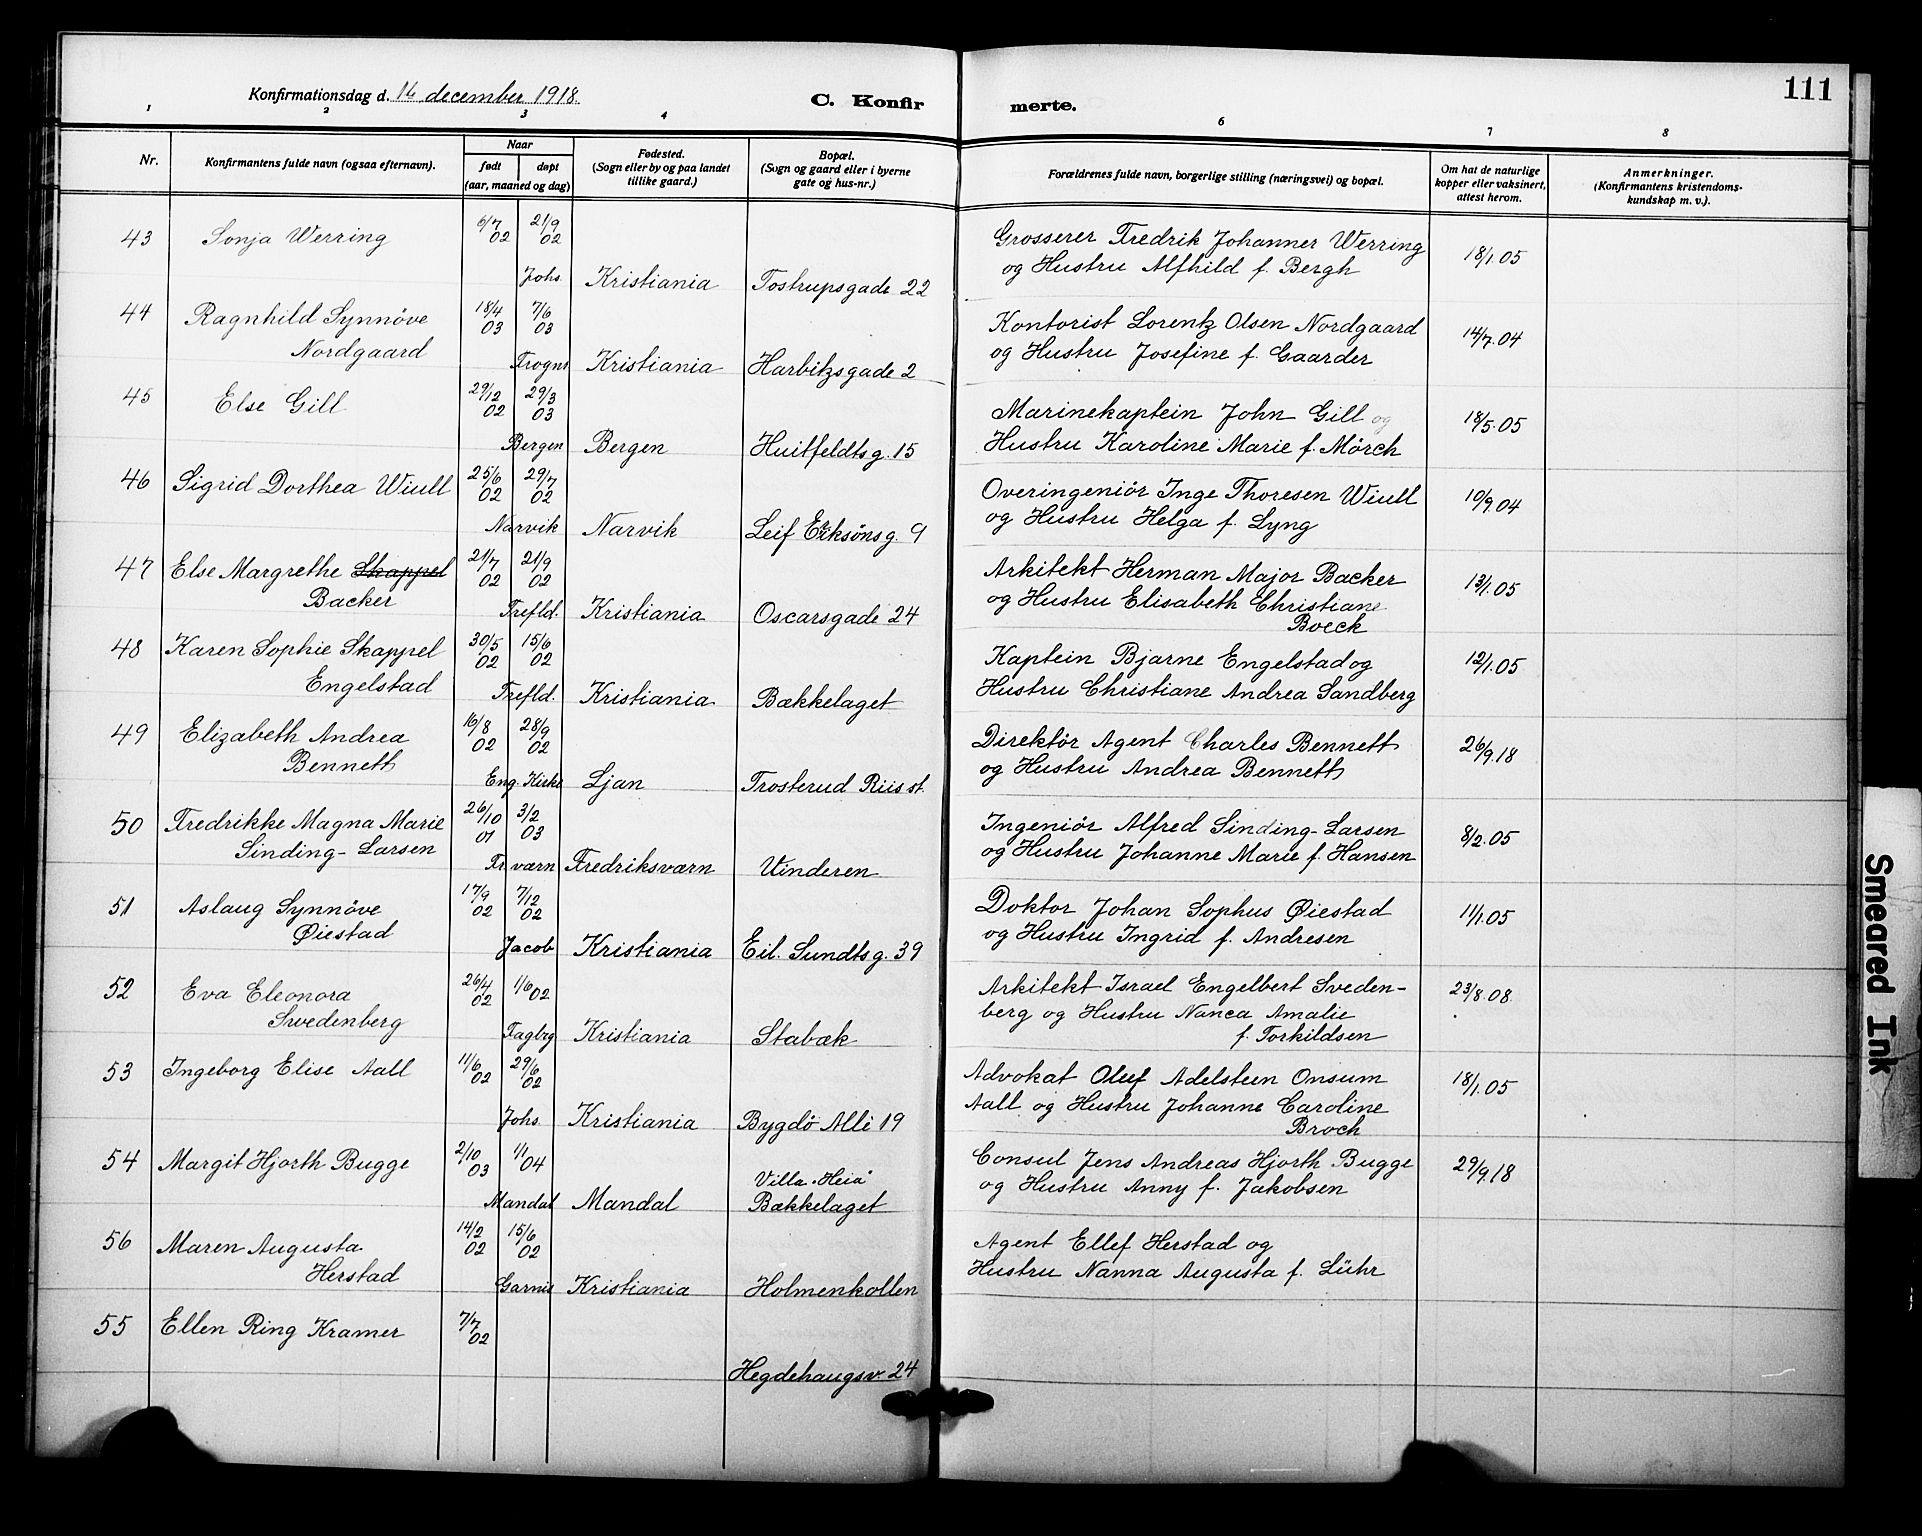 Konfirmationsdag d. 14 december 1918.
C. Konfirmerte.
111
1 2 3 4 6 7 8
Nr.
Konfirmantens fulde navn (ogsaa efternavn).
Naar
født
døpt
(aar, maaned og dag)
Fødested.
(Sogn eller by og paa landet
tillike gaard.)
Bopæl.
(Sogn og gaard eller i byerne
gate og hus-nr.)
Forældrenes fulde navn, borgerlige stilling (næringsvei) og bopæl.
Om hat de naturlige
kopper eller vaksinert,
attest herom.
Anmerkninger.
(Konfirmantens kristendoms-
kundskap m. v.).
43 Sonja Werring 6/7 02 21/9 02
Johs. Kristiania Tostrupsgade 22
Grosserer Fredrik Johannes Werring
og Hustru Alfhild f. Bergh
18/1.05
44 Ragnhild Synnöve
Nordgaard
18/4 03 7/6 03
Frogns Kristiania Harbitzsgade 2
Kontorist Lorentz Olsen Nordgaard
og Hustru Josefine f. Gaarder
14/7.04
45 Else Gill 29/12 02 29/3 03
Bergen Bergen Huitfeldtsg. 15
Marinekaptein John Gill og
Hustru Karoline Marie f. Mörch
18/5.05
46 Sigrid Dorthea Wiull 25/6 02 29/7 02
Narvik Narvik Leif Eriksönsg. 9
Overingeniör Inge Thoresen Wiull
og Hustru Helga f. Lyng
10/9.04
47 Else Margrethe Skappel
Backer
21/7 02 21/9 02
Trefld. Kristiania Oscarsgade 24
Arkitekt Herman Major Backer
og Hustru Elisabeth Christiane
Boeck
13/1.05
48 Karen Sophie Skappel
Engelstad
30/5 02 15/6 02
Trefld. Kristiania Bækkelaget
Kaptein Bjarne Engelstad og
Hustru Christiane Andrea Sandberg
12/1.05
49 Elizabeth Andrea
Bennett
16/8 02 28/9 02
Eng. Kirke Ljan Trosterud Riis st.
Direktör Agent Charles Bennett
og Hustru Andrea Bennett
26/9.18
50 Fredrikke Magna Marie
Sinding-Larsen
26/10 01 3/2 03
Fr.værn Fredriksværn Vinderen
Ingeniör Alfred Sinding-Larsen
og Hustru Johanne Marie f. Hansen
8/2.05
51 Aslaug Synnöve
Øiestad
17/9 02 7/12 02
Jacob Kristiania Eil. Sundtsg. 39
Doktor Johan Sophus Øiestad
og Hustru Ingrid f. Andresen
11/1.05
52 Eva Eleonora
Swedenberg
26/4 02 1/6 02
Fagbrg Kristiania Stabæk
Arkitekt Israel Engelbert Sveden-
berg og Hustru Nanca Amalie
f. Torkildsen
23/8.08.
53 Ingeborg Elise Aall 11/6 02 29/6 02
Johs. Kristiania Bygdö Allé 19
Advokat Oluf Adelsteen Onsum
Aall og Hustru Johanne Caroline
Broch
18/1.05
54 Margit Hjorth Bugge 2/10 03 1/1 04
Villa "Heia"
Mandal Mandal Bækkelaget
Consul Jens Andreas Hjorth Bugge
og Hustru Anny f. Jakobsen
29/9.18
56 Maren Augusta
Herstad
14/2 02 15/6 02
Garnis Kristiania Holmenkollen
Agent Ellef Herstad og
Hustru Nanna Augusta f. Lühr
55 Ellen Ring Kramer 7/7 02
Hegdehaugsv. 24
Smeared Ink